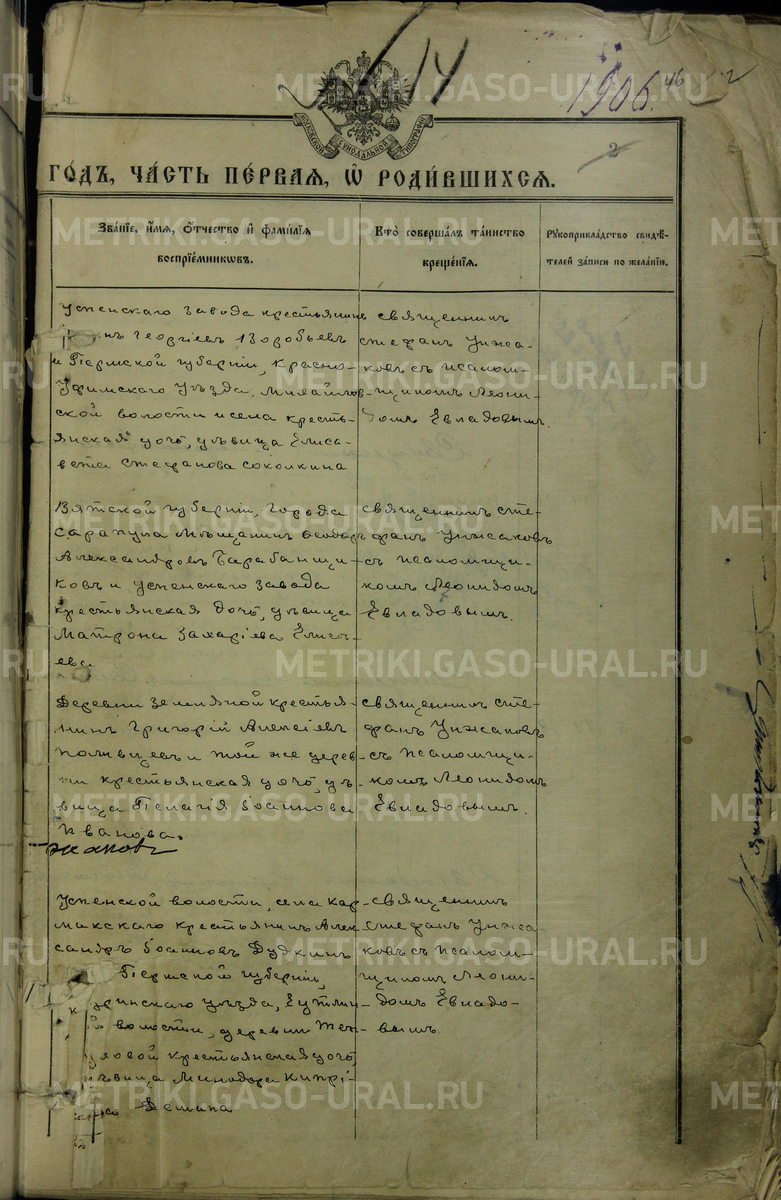 14
1906.
46
2
МОСКОВСКОЙ СѴНОДАЛЬНОЙ ТИПОГРАФІИ
2
ГОДЪ, ЧАСТЬ ПЕРВАЯ, Ѡ РОДИВШИХСЯ.
Званіе, имя, отчество и фамилія воспріемниковъ.
Кто совершалъ таинство крещенія.
Рукоприкладство свидѣтелей записи по желанію.
Успенскаго завода крестьянинъ
Георгіевъ Воробьевъ
и Пермской губерніи, Красно-
Уфимскаго Уѣзда, Михайлов-
ской волости и села кресть-
янская дочь, дѣвица Елиса-
вета Стефанова Соколкина
Священникъ
Стефанъ Унжа-
ковъ съ псалом-
щикомъ Леони-
домъ Евладовымъ.
Вятской губерніи, города
Сарапула мѣщанинъ Ѳеодоръ
Александровъ Барабанщи-
ковъ и Успенскаго завода
крестьянская дочь, дѣвица
Матрона Захаріева Елисѣ-
ева
Священникъ Сте-
фанъ Унжаковъ
съ псаломщи-
комъ Леонидомъ
Евладовымъ.
Деревни Земляной крестья-
нинъ Григорій Алексіевъ
и той же дерев-
ни крестьянская дочь, дѣ-
вица Пелагія Іоаннова
Иванова.
Священникъ Сте-
фанъ Унжаковъ
съ псаломщи-
комъ Леонидомъ
Евладовымъ.
Успенской волости, села Кар-
макскаго крестьянинъ Алек-
сандръ Іоанновъ Дудкинъ
Пермской губерніи,
уѣзда,
волости, деревни
крестьянская дочь,
дѣвица Минодора Кипрі-
Демина
Священникъ
Стефанъ Унжа-
ковъ съ псалом-
щикомъ Леони-
домъ Евладо-
вымъ
METRIKI.GASO-URAL.RU